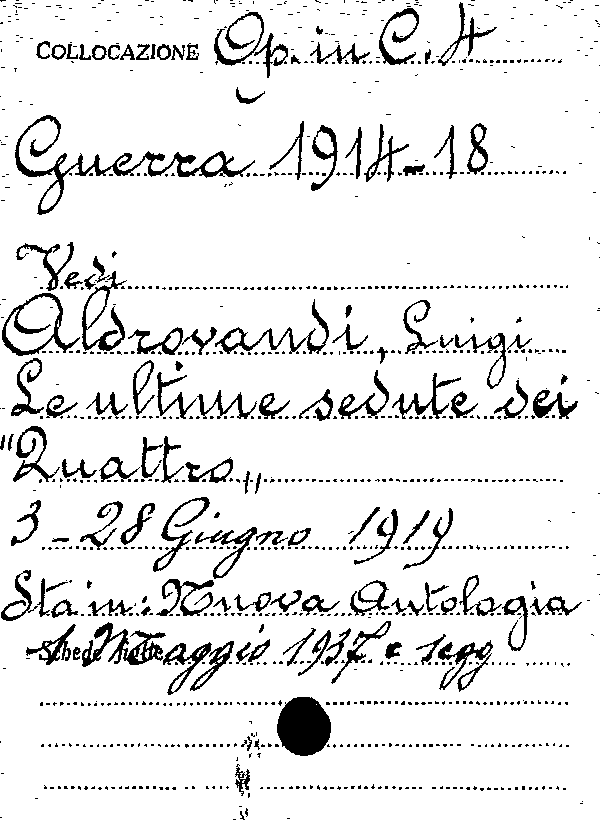 COLLOCAZIONE Op. in C. 4
Guerra 1914-18
Vedi
Aldrovandi, Luigi
Le ultime sedute dei
"Quattro„
3-28 Giugno 1919
Sta in: Nuova Antologia
Schede Maggio 1937 e segg